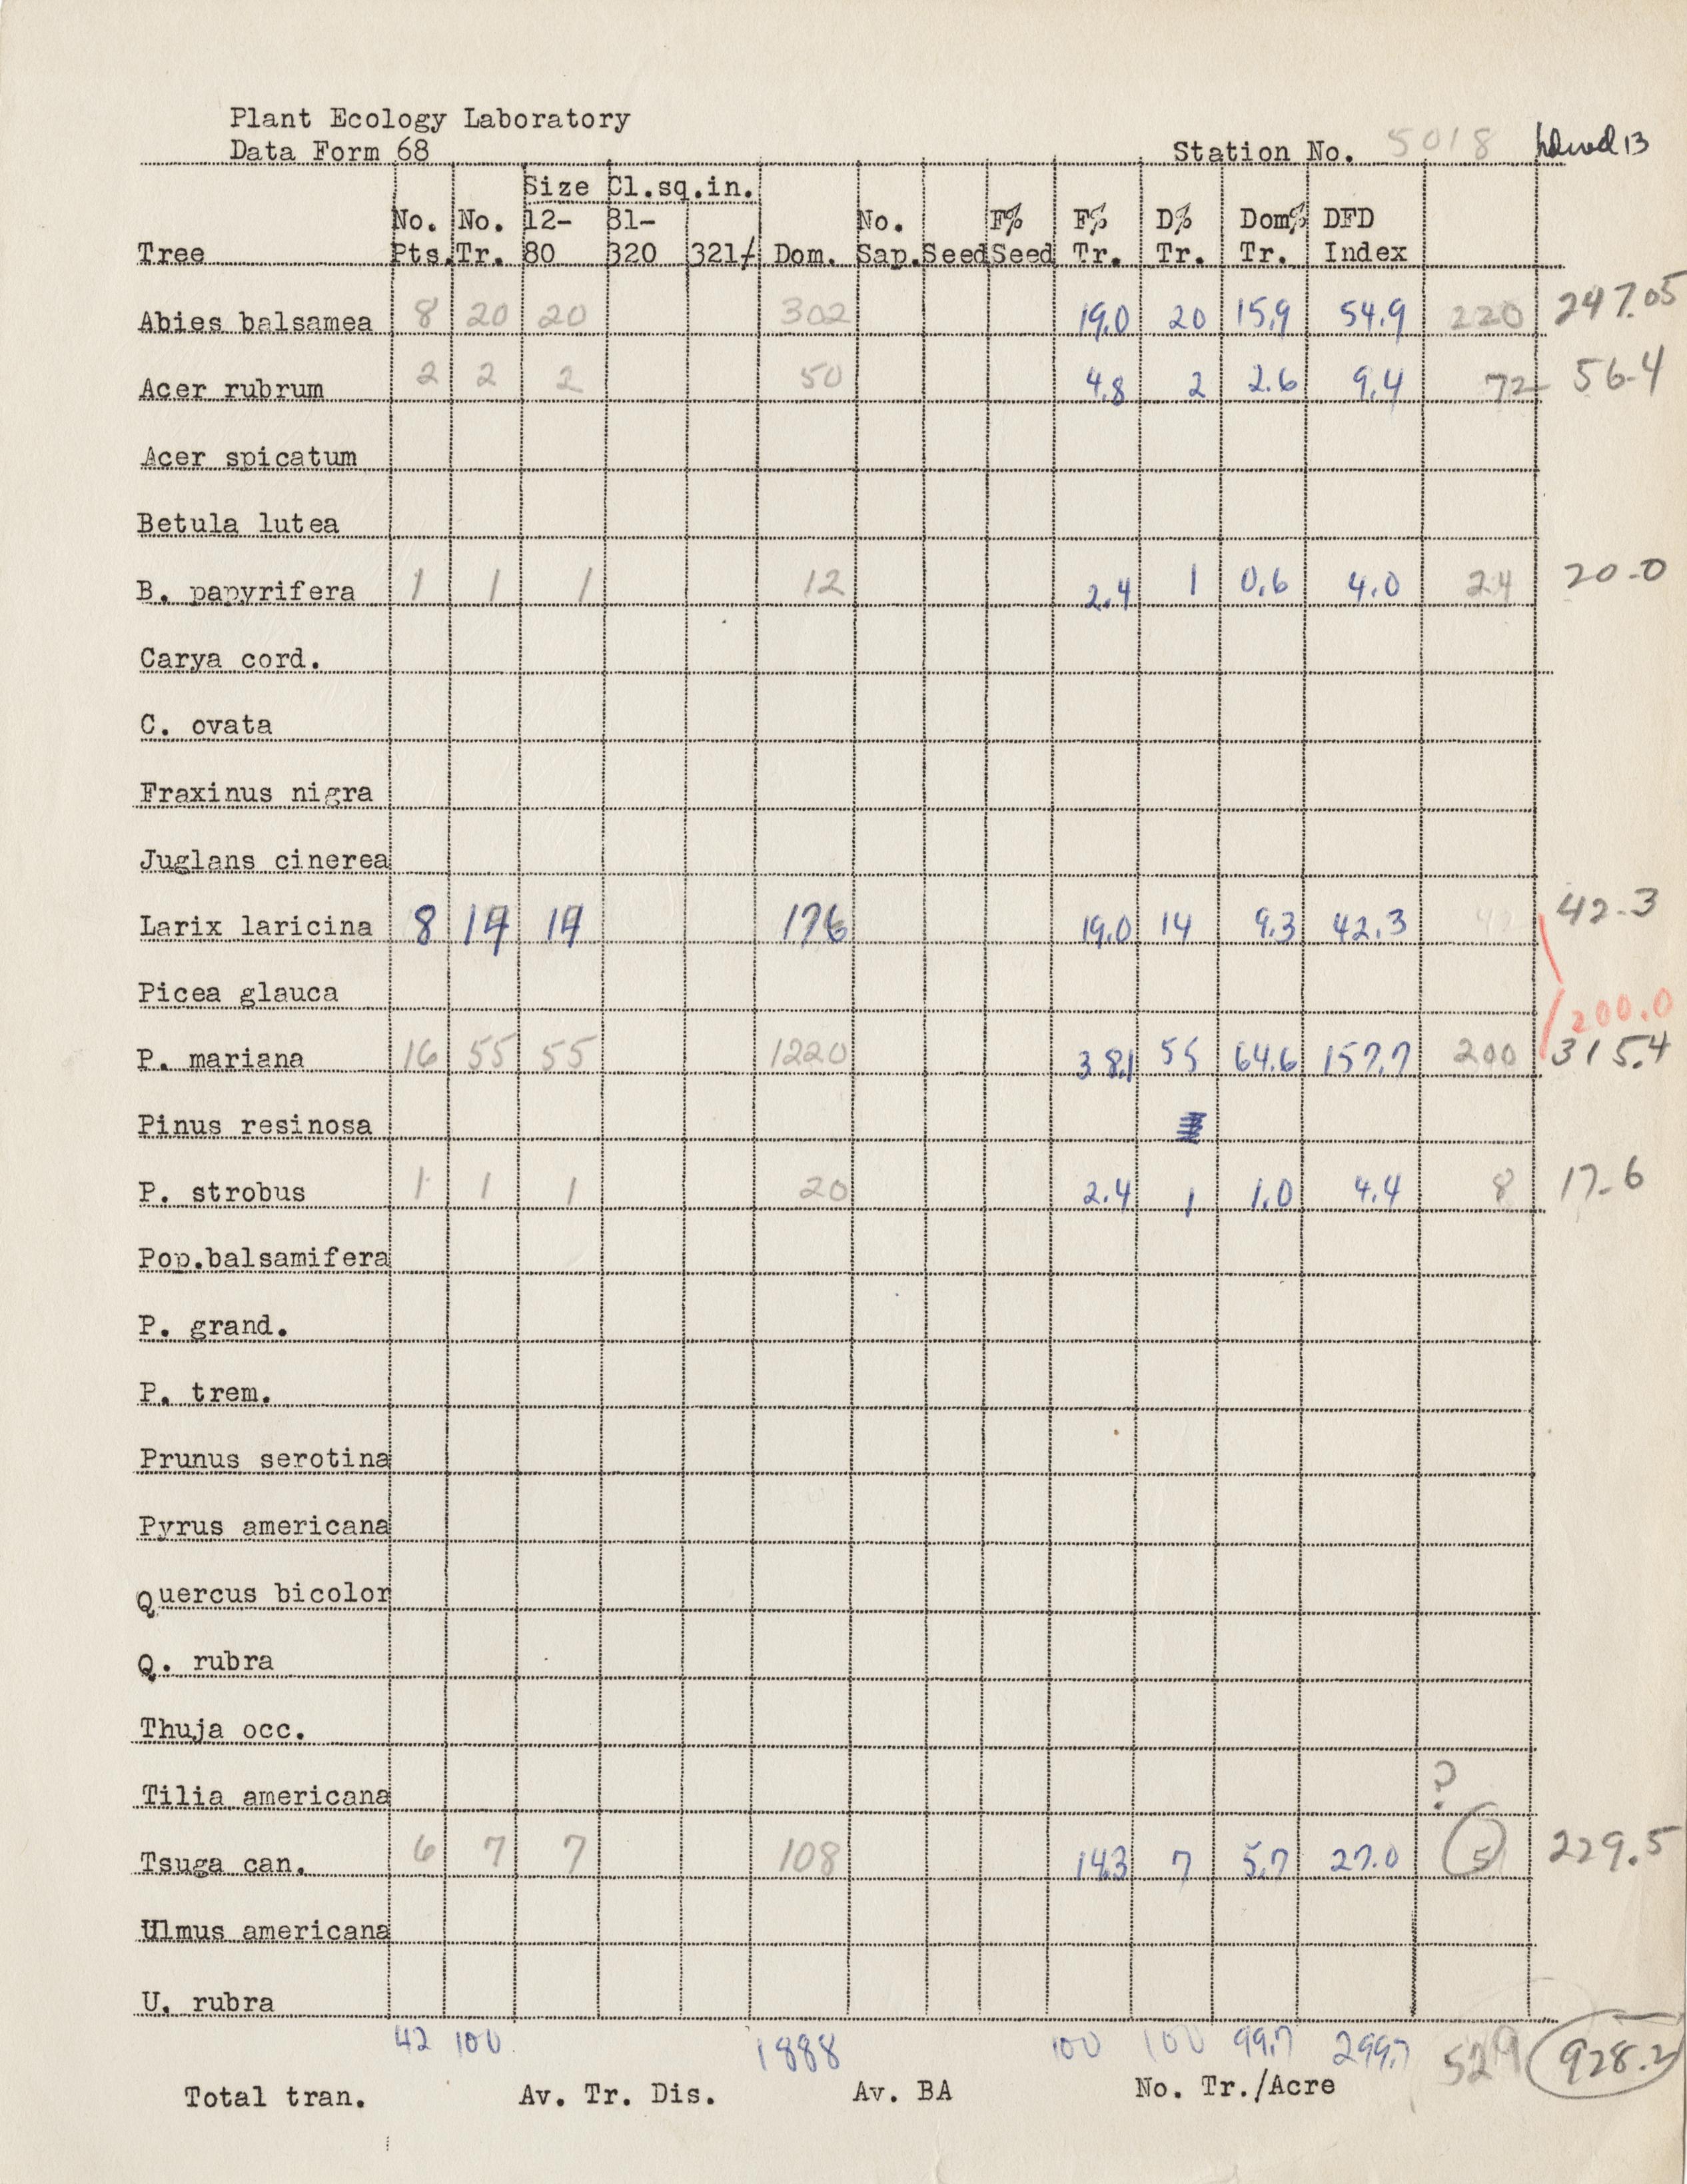 Plant Ecology Laboratory
Data Form 68 Station No. 5018 13
Size Cl.sq.in.
No. No. 12- 81- No. F% F% D% Dom% DFD
Tree Pts. Tr. 80 320 321/ Dom. Sap. Seed Seed Tr. Tr. Tr. Index
Abies balsamea 8 20 20 302 19.0 20 15.9 54.9 220 247.05
Acer rubrum 2 2 2 50 4.8 2 2.6 9.4 72 56.4
Acer spicatum
Betula lutea
B. papyrifera 1 1 1 12 2.4 1 0.6 4.0 24 20.0
Carya cord.
C. ovata
Fraxinus nigra
Juglans cinerea
Larix laricina 8 14 14 176 19.0 14 9.3 42.3 42 42.3
Picea glauca
200.0
P. mariana 16 55 55 1220 38.1 55 64.6 157.7 200 315.4
Pinus resinosa
P. strobus 1 1 1 20 2.4 1 1.0 4.4 8 17.6
Pop.balsamifera
P. grand.
P. trem.
Prunus serotina
Pyrus americana
Quercus bicolor
Q. rubra
Thuja occ.
Tilia americana ?
Tsuga can. 6 7 7 108 14.3 7 5.7 27.0 5 229.5
Ulmus americana
U. rubra
42 100 1888 100 100 99.7 299.7 529 928.2
Total tran. Av. Tr. Dis. Av. BA No. Tr./Acre